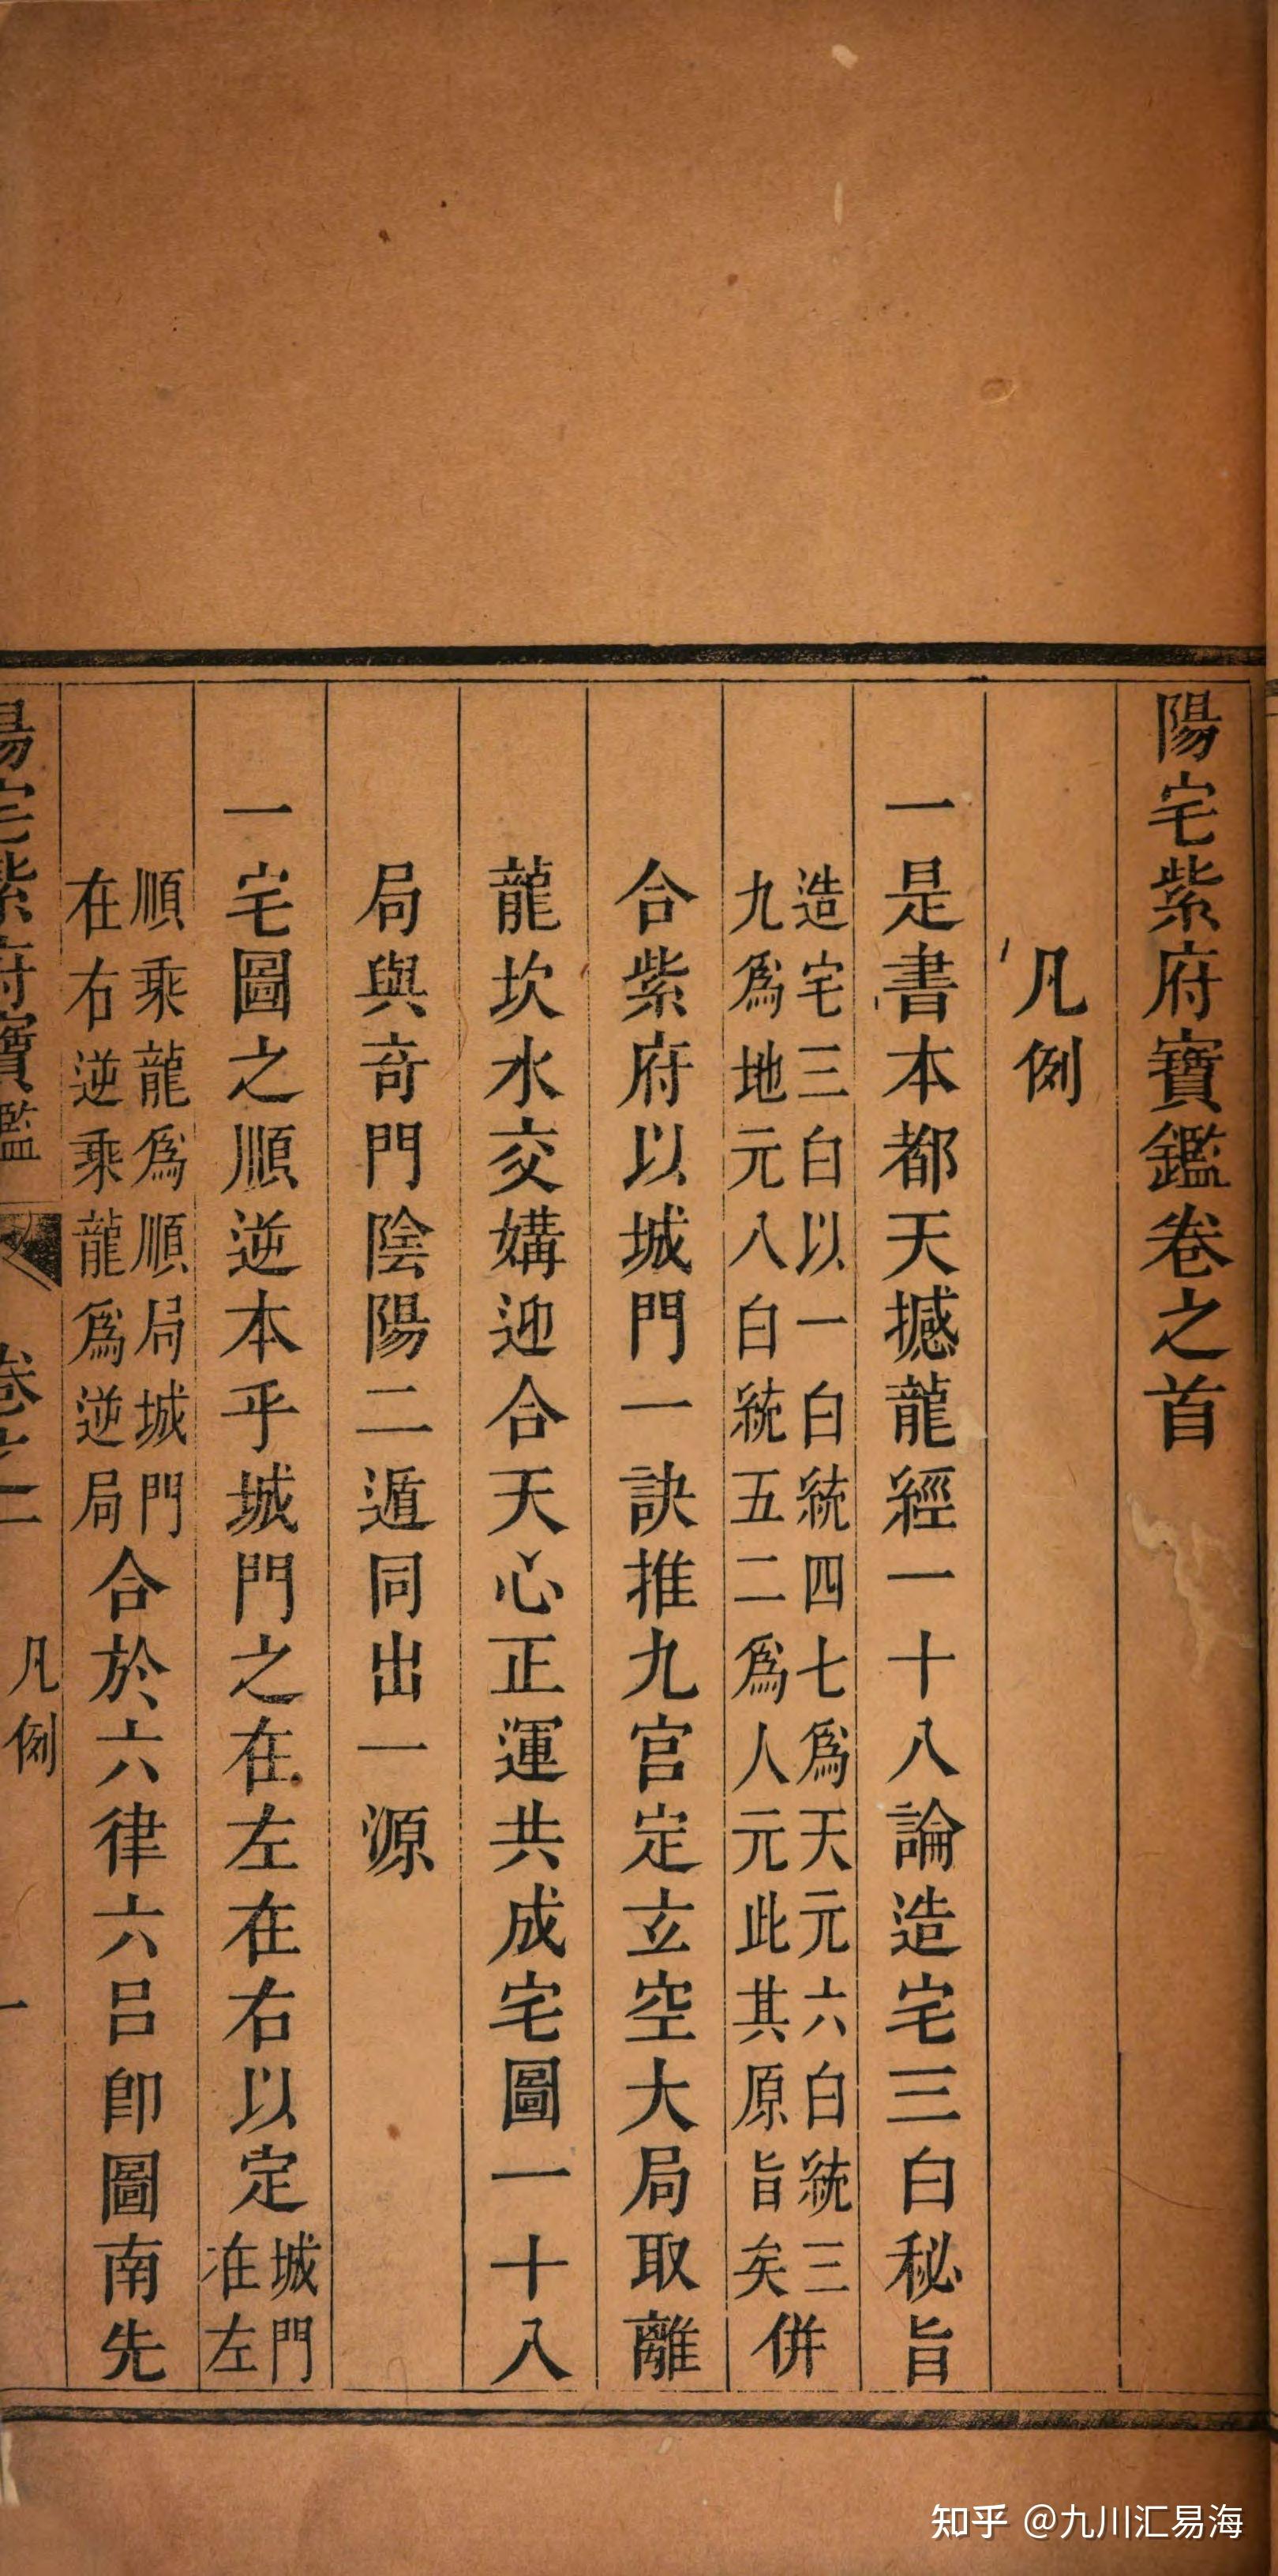 陽宅紫府寶鑑卷之首
凡例
一是書本都天撼龍經一十八論造宅三白秘旨
造宅三白以一白統四七為天元六白統三
九為地元八白統五二為人元此其原旨矣
併
合紫府以城門一訣推九宮定立空大局取離
龍坎水交媾迎合天心正運共成宅圖一十八
局與奇門陰陽二遁同出一源
一宅圖之順逆本乎城門之在左在右以定
城門
在左
順乘龍為順局城門
在右逆乘龍為逆局
合於六律六呂即圖南先
陽宅紫府寶鑑 卷之 凡例 一
知乎 @九川汇易海